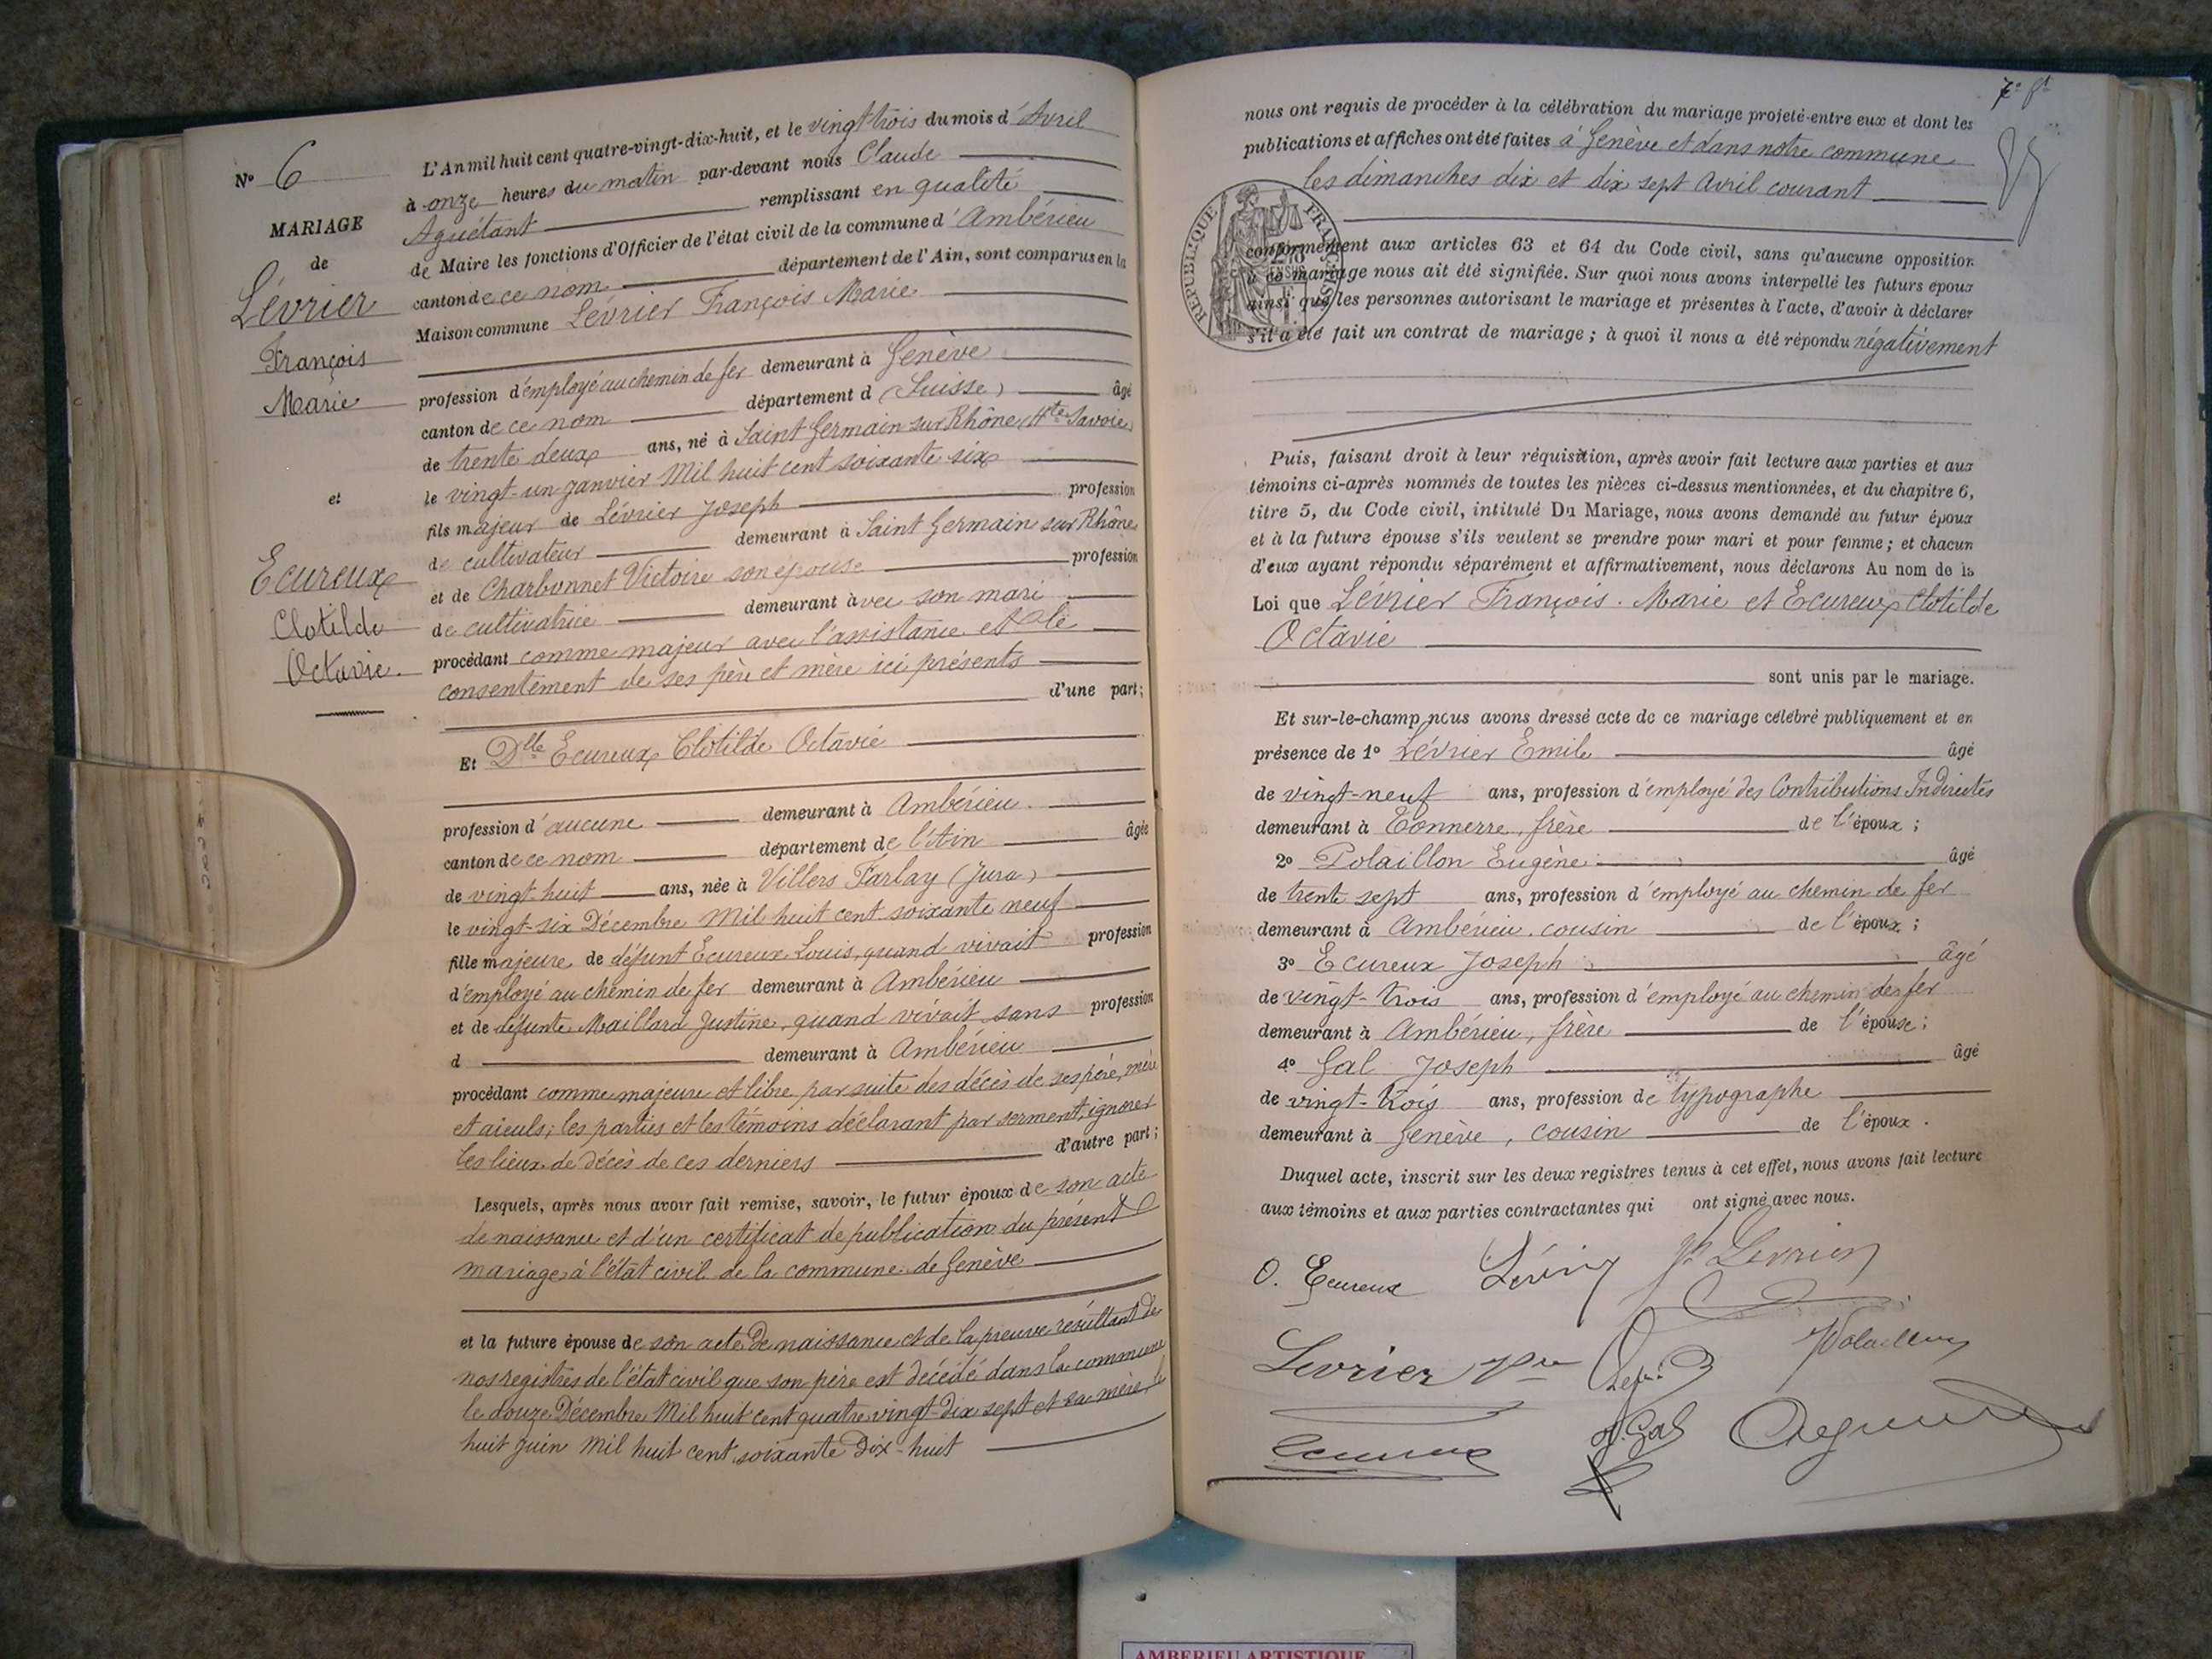 N° 6
MARIAGE
de
Lévrier
François
Marie
et
Ecureux
Clotilde
Octavie.
L'An mil huit cent quatre-vingt-dix-huit, et le vingt trois du mois d'Avril
à onze heures du matin par-devant nous Claude
Aguétant remplissant en qualité
de Maire les fonctions d'Officier de l'état civil de la commune d'Ambérieu
canton de ce nom département de l'Ain, sont comparus en la
Maison commune Lévrier François Marie
profession d'employé au chemin de fer demeurant à Genève
canton de ce nom département d (Suisse) âgé
de trente deux ans, né à Saint Germain sur Rhône (Hte Savoie)
le vingt-un janvier Mil huit cent soixante six
fils majeur de Lévrier Joseph profession
de cultivateur demeurant à Saint Germain sur Rhône
et de Charbonnet Victoire son épouse profession
de cultivatrice demeurant avec son mari
procédant comme majeur avec l'assistance et le
consentement de ses père et mère ici présents
d'une part;
Et Dlle Ecureux Clotilde Octavie
profession d'aucune demeurant à Ambérieu
canton de ce nom département de l'Ain âgée
de vingt huit ans, née à Villers Farlay (Jura)
le vingt-six Décembre Mil huit cent soixante neuf
fille majeure de défunt Ecureux Louis, quand vivait profession
d'employé au chemin de fer demeurant à Ambérieu
et de défunte Maillard Justine, quand vivait sans profession
d demeurant à Ambérieu
procédant comme majeure et libre par suite des décès de ses père, mère
et aïeuls; les parties et les témoins déclarant par serment ignorer
les lieux de décès de ces derniers d'autre part;
Lesquels, après nous avoir fait remise, savoir, le futur époux de son acte
de naissance et d'un certificat de publication du présent
mariage à l'état civil de la commune de Genève
et la future épouse de son acte de naissance et de la preuve résultant de
nos registres de l'état civil que son père est décédé dans la commune
le douze Décembre Mil huit cent quatre vingt-dix sept et sa mère le
huit Juin Mil huit cent soixante Dix-huit
7e ft
nous ont requis de procéder à la célébration du mariage projeté entre eux et dont les
publications et affiches ont été faites à Genève et dans notre commune
les dimanches dix et dix sept Avril courant
REPUBLIQUE FRANÇAISE
conformément aux articles 63 et 64 du Code civil, sans qu'aucune opposition
à ce mariage nous ait été signifiée. Sur quoi nous avons interpellé les futurs époux
ainsi que les personnes autorisant le mariage et présentes à l'acte, d'avoir à déclarer
s'il a été fait un contrat de mariage; à quoi il nous a été répondu négativement
Puis, faisant droit à leur réquisition, après avoir fait lecture aux parties et aux
témoins ci-après nommés de toutes les pièces ci-dessus mentionnées, et du chapitre 6,
titre 5, du Code civil, intitulé Du Mariage, nous avons demandé au futur époux
et à la future épouse s'ils veulent se prendre pour mari et pour femme; et chacun
d'eux ayant répondu séparément et affirmativement, nous déclarons Au nom de la
Loi que Lévrier François. Marie et Ecureux Clotilde
Octavie
sont unis par le mariage.
Et sur-le-champ nous avons dressé acte de ce mariage célébré publiquement et en
présence de 1° Lévrier Emile âgé
de vingt-neuf ans, profession d'employé des Contributions Indirectes
demeurant à Tonnerre, frère de l'époux;
2° Polaillon Eugène âgé
de trente sept ans, profession d'employé au chemin de fer
demeurant à Ambérieu, cousin de l'époux;
3° Ecureux Joseph âgé
de vingt-trois ans, profession d'employé au chemin de fer
demeurant à Ambérieu, frère de l'épouse;
4° Gal Joseph âgé
de vingt-trois ans, profession de typographe
demeurant à Genève, cousin de l'époux.
Duquel acte, inscrit sur les deux registres tenus à cet effet, nous avons fait lecture
aux témoins et aux parties contractantes qui ont signé avec nous.
O. Ecureux Lévrier Jh Levrier
Levrier Polaillon
Ecureux J. Gal Aguétant
AMBERIEU ARTISTIQUE